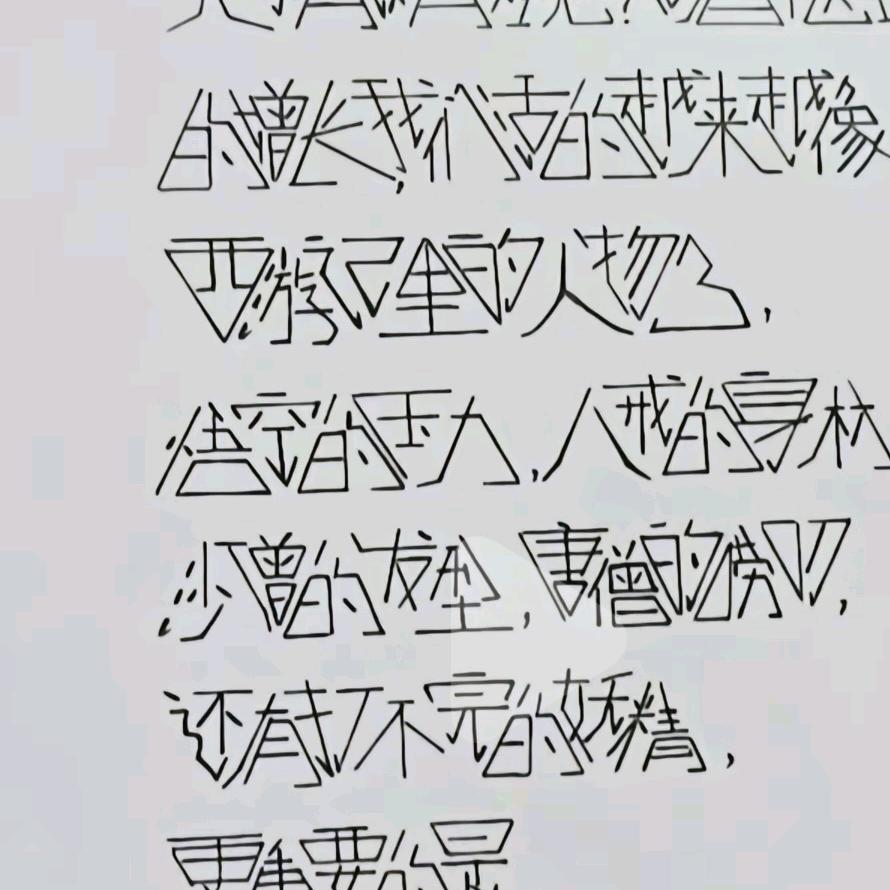 的增长,我们活的越来越像
西游记里的人物了,
悟空的压力,八戒的身材
沙僧的发型,唐僧的唠叨,
还有打不完的妖精,
更重要的是